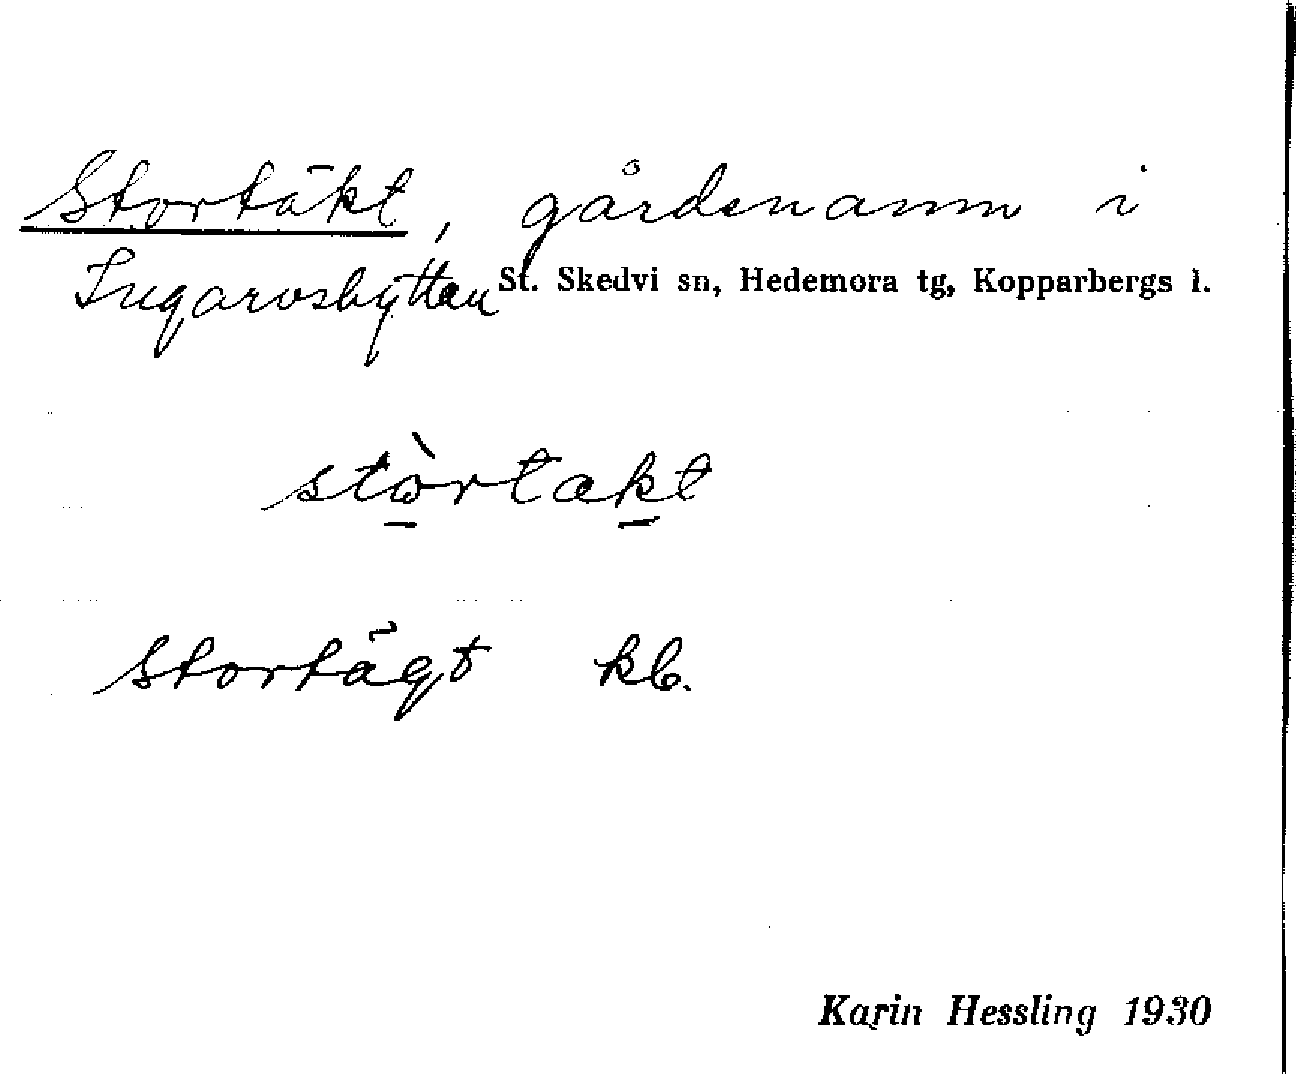 Stortäkt, gårdsnamn i
Ingarvshyttan St. Skedvi sn, Hedemora tg, Kopparbergs l.
stòrtakt
Stortägt kb.
Karin Hessling 1930